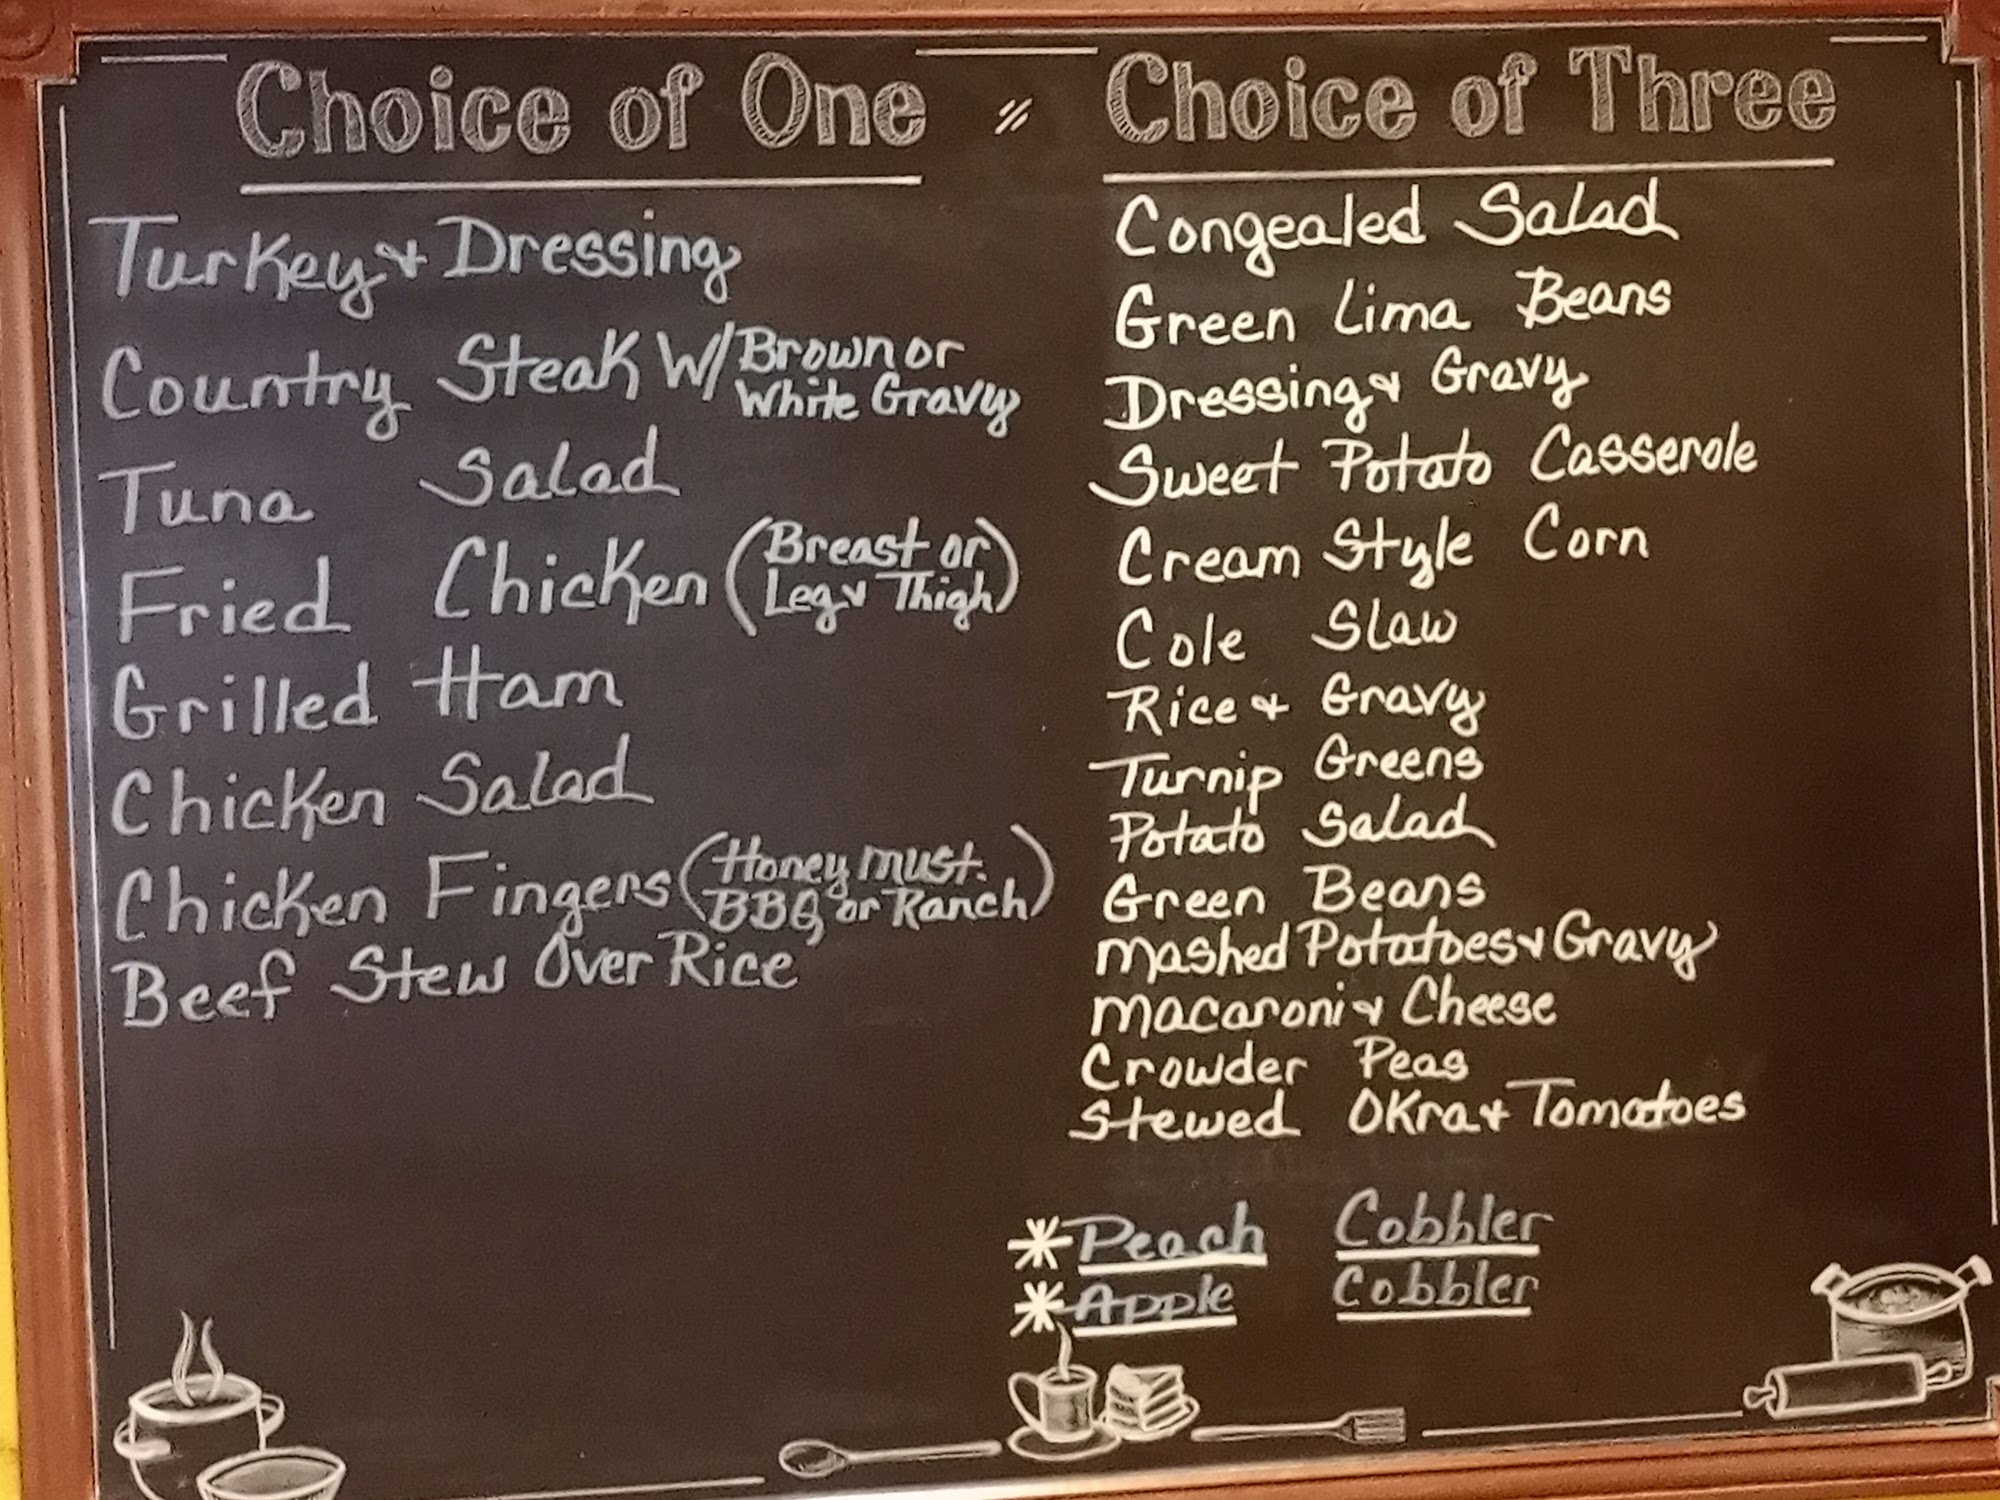 Choice of One
Turkey & Dressing
Country Steak W/ Brown or
White Gravy
Tuna Salad
Fried Chicken (Breast or
Leg & Thigh)
Grilled Ham
Chicken Salad
Chicken Fingers (Honey Must.
BBQ, or Ranch)
Beef Stew Over Rice
Choice of Three
Congealed Salad
Green Lima Beans
Dressing & Gravy
Sweet Potato Casserole
Cream Style Corn
Cole Slaw
Rice & Gravy
Turnip Greens
Potato Salad
Green Beans
Mashed Potatoes & Gravy
Macaroni & Cheese
Crowder Peas
Stewed Okra & Tomatoes
* Peach Cobbler
* Apple Cobbler